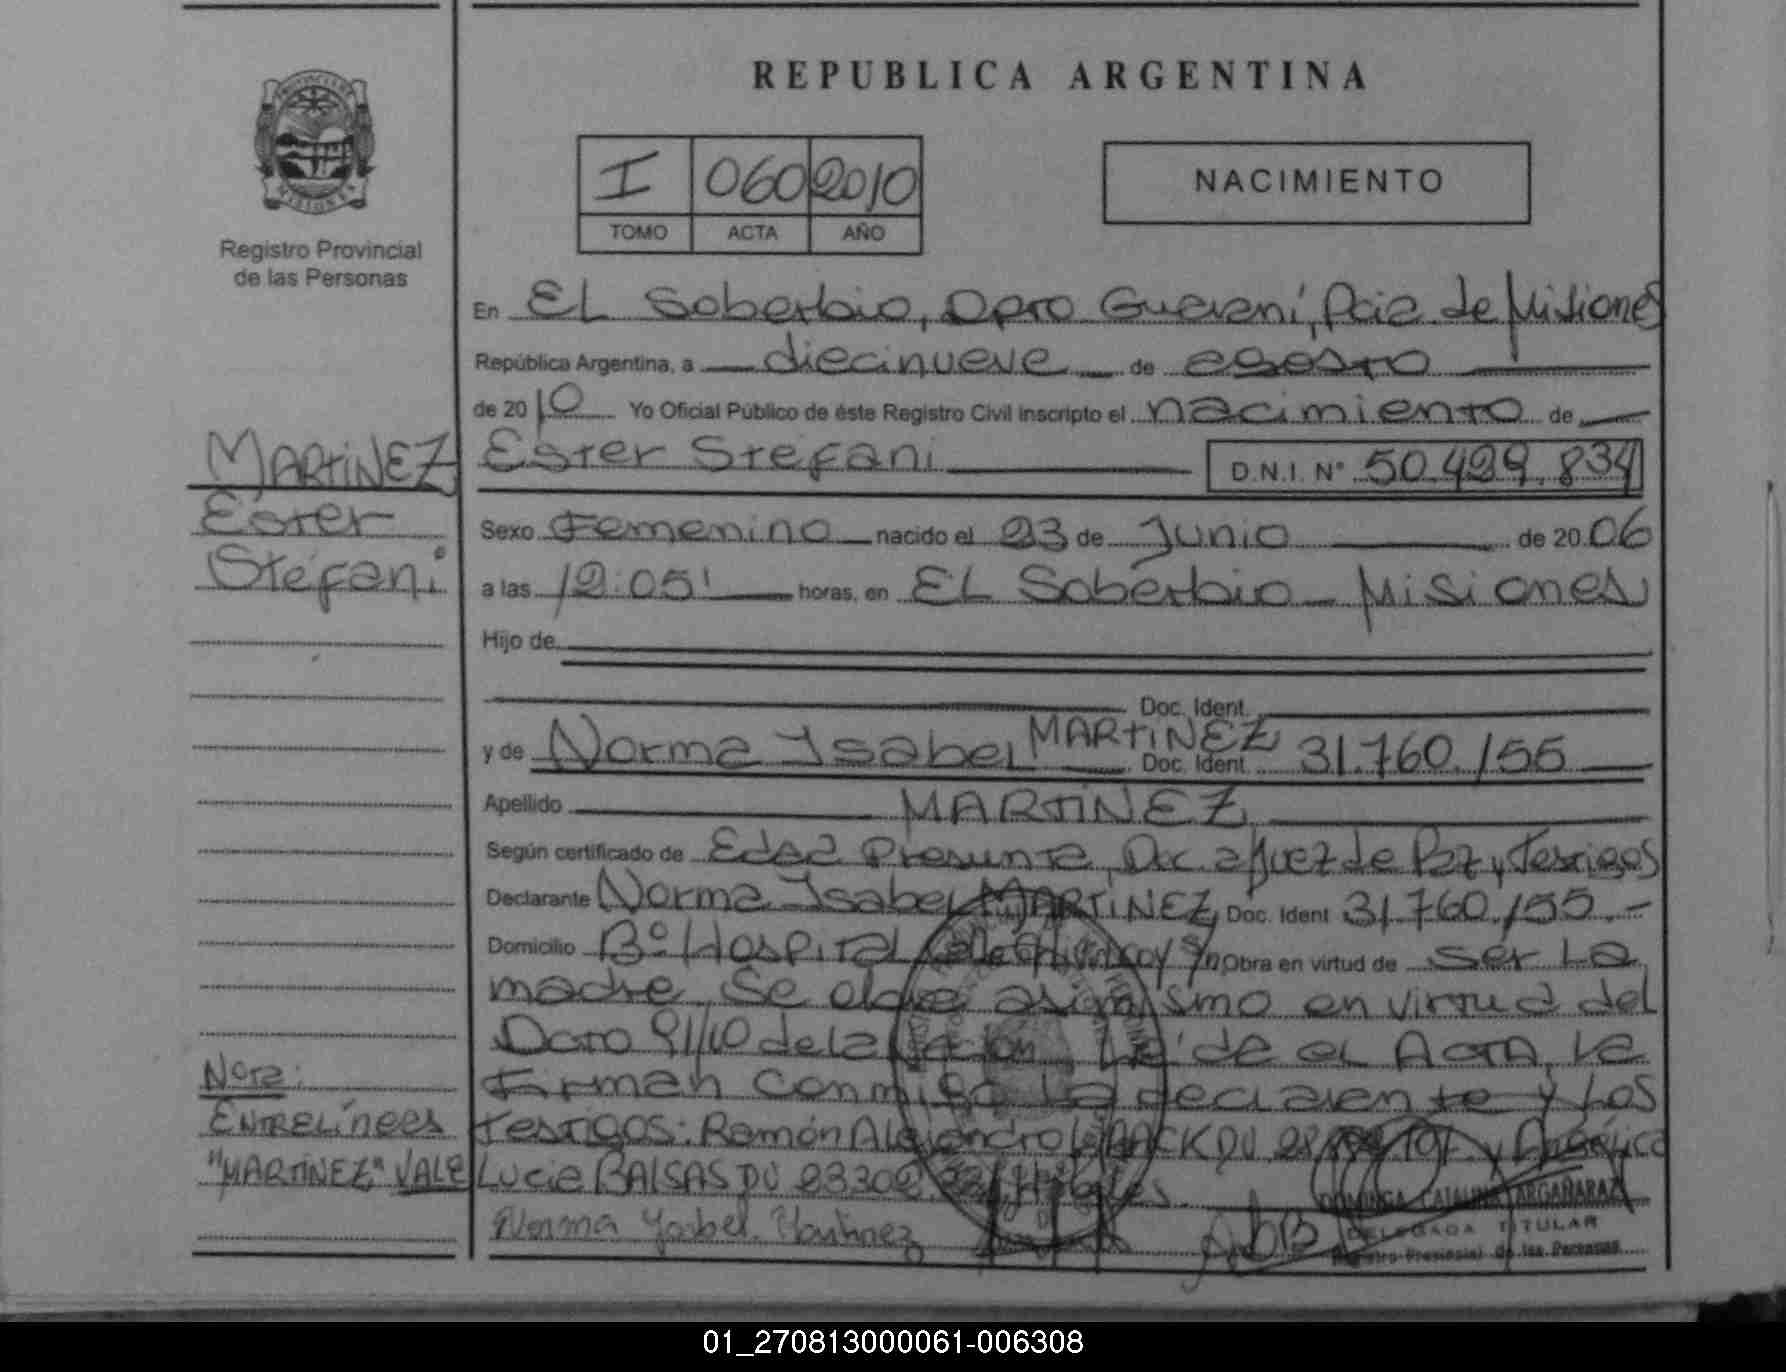 REPUBLICA ARGENTINA
PROVINCIA DE MISIONES
Registro Provincial
de las Personas
I 060 2010
TOMO ACTA AÑO
NACIMIENTO
En EL Soberbio, Dpto Guaraní, Pcia de Misiones
República Argentina, a diecinueve de agosto
de 2010 Yo Oficial Público de éste Registro Civil inscripto el nacimiento de
MARTINEZ
Ester
Stefani
Ester Stefani D.N.I. N° 50.429.834
Sexo Femenino nacido el 23 de Junio de 2006
a las 12:05' horas, en EL Soberbio - Misiones
Hijo de
Doc. Ident.
y de Norma Isabel MARTINEZ Doc. Ident. 31.760.155
Apellido MARTINEZ
Según certificado de Edad Presunta, Dec. a Juez de Paz y Testigos
Declarante Norma Isabel MARTINEZ Doc. Ident 31.760.155.-
Domicilio B° Hospital calle s/n Obra en virtud de ser La
madre. Se asimismo en virtud del
Dcto 91/10 de la Nación Leída el Acta, La
Firman Conmigo La declarante y Los
Testigos: Ramón Alejandro DU y Angélica
Lucia BALSAS DU
Nota:
Entrelíneas
"MARTINEZ" VALE
Norma Isabel Martinez
DOMINGA CATALINA ARGAÑARAZ
DELEGADA TITULAR
Registro Provincial de las Personas
01_270813000061-006308